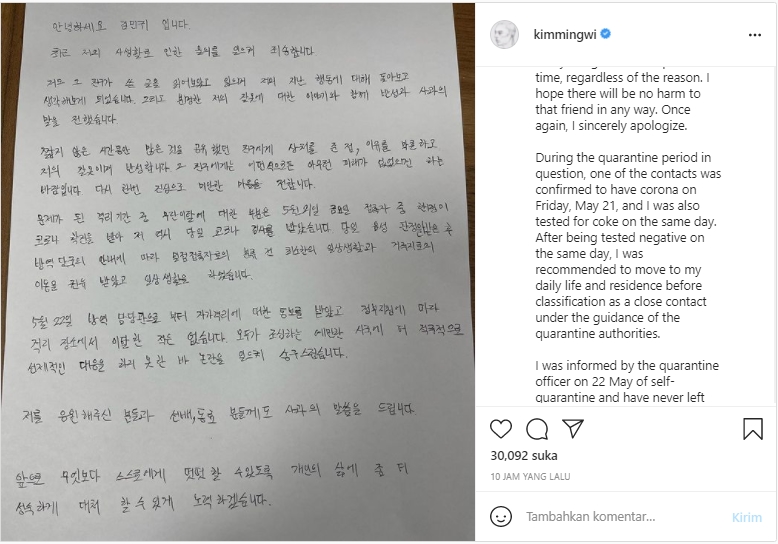 안녕하세요 김민귀 입니다.
최근 저의 사생활로 인한 물의를 일으켜 죄송합니다
저도 그 친구가 쓴 글을 읽어보았고 있으며 저의 지난 행동에 대해 돌아보고
생각해보게 되었습니다. 그리고 저의 잘못에 대한 이야기와 함께 반성과 사과의
말을 전했습니다.
짧지 않은 시간동안 많은 것을 공유했던 친구에게 상처를 준 점, 이유를 불문하고
저의 잘못이며 반성합니다 그 친구에게는 어떤식으로든 아무런 피해가 없었으면 하는
바람입니다 다시 한번 진심으로 미안한 마음을 전합니다.
문제가 된 격리기간 중 무단이탈에 대한 부분은 5월 21일 금요일 접촉자 중 한명이
코로나 확진을 받아 저 역시 당일 코로나 검사를 받았습니다 당일 음성 판정받은 후
방역 당국의 안내에 따라 밀접접촉자로의 분류 전 최소한의 일상생활과 거주지로의
이동을 권유 받았고 일상 생활로 하였습니다.
5월 22일 방역 담당관으로 부터 자가격리에 대한 통보를 받았고 정부지침에 따라
격리 장소에서 이탈한 적은 없습니다. 모두가 조심하는 예민한 시국에 더 적극적으로
선제적인 대응을 하지 못한 바 논란을 일으켜 송구스럽습니다.
저를 응원해주신 분들과 선배, 동료 분들께도 사과의 말씀을 드립니다.
앞으로 무엇보다 스스로에게 떳떳 할 수 있도록 개인의 삶에 좀 더
성숙하게 대처 할 수 있게 노력하겠습니다.
kimmingwi
time, regardless of the reason. I
hope there will be no harm to
that friend in any way. Once
again, I sincerely apologize.
During the quarantine period in
question, one of the contacts was
confirmed to have corona on
Friday, May 21, and I was also
tested for coke on the same day.
After being tested negative on
the same day, I was
recommended to move to my
daily life and residence before
classification as a close contact
under the guidance of the
quarantine authorities.
I was informed by the quarantine
officer on 22 May of self-
quarantine and have never left
30,092 suka
10 JAM YANG LALU
Tambahkan komentar...
Kirim